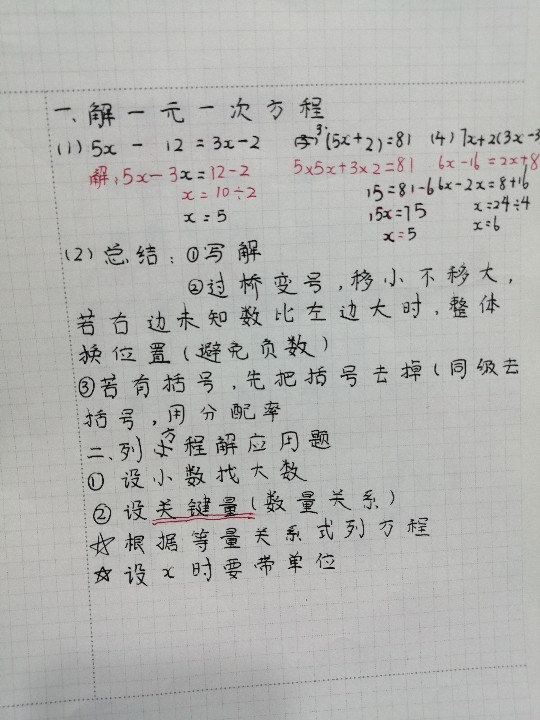 一、解一元一次方程
(1) 5x - 12 = 3x-2 3(5x+2)=81 (4) 7x+2(3x-3
解:5x-3x=12-2 5x5x+3x2=81 6x-16=2x+8
x=10÷2 15=81-6 6x-2x=8+16
x=5 15x=75 x=24÷4
x=5 x=6
(2) 总结:①写解
②过桥变号,移小不移大,
若右边未知数比左边大时,整体
换位置(避免负数)
③若有括号,先把括号去掉(同级去
括号,用分配率
二、列方程解应用题
① 设小数找大数
② 设关键量(数量关系)
☆ 根据等量关系式列方程
☆ 设x时要带单位